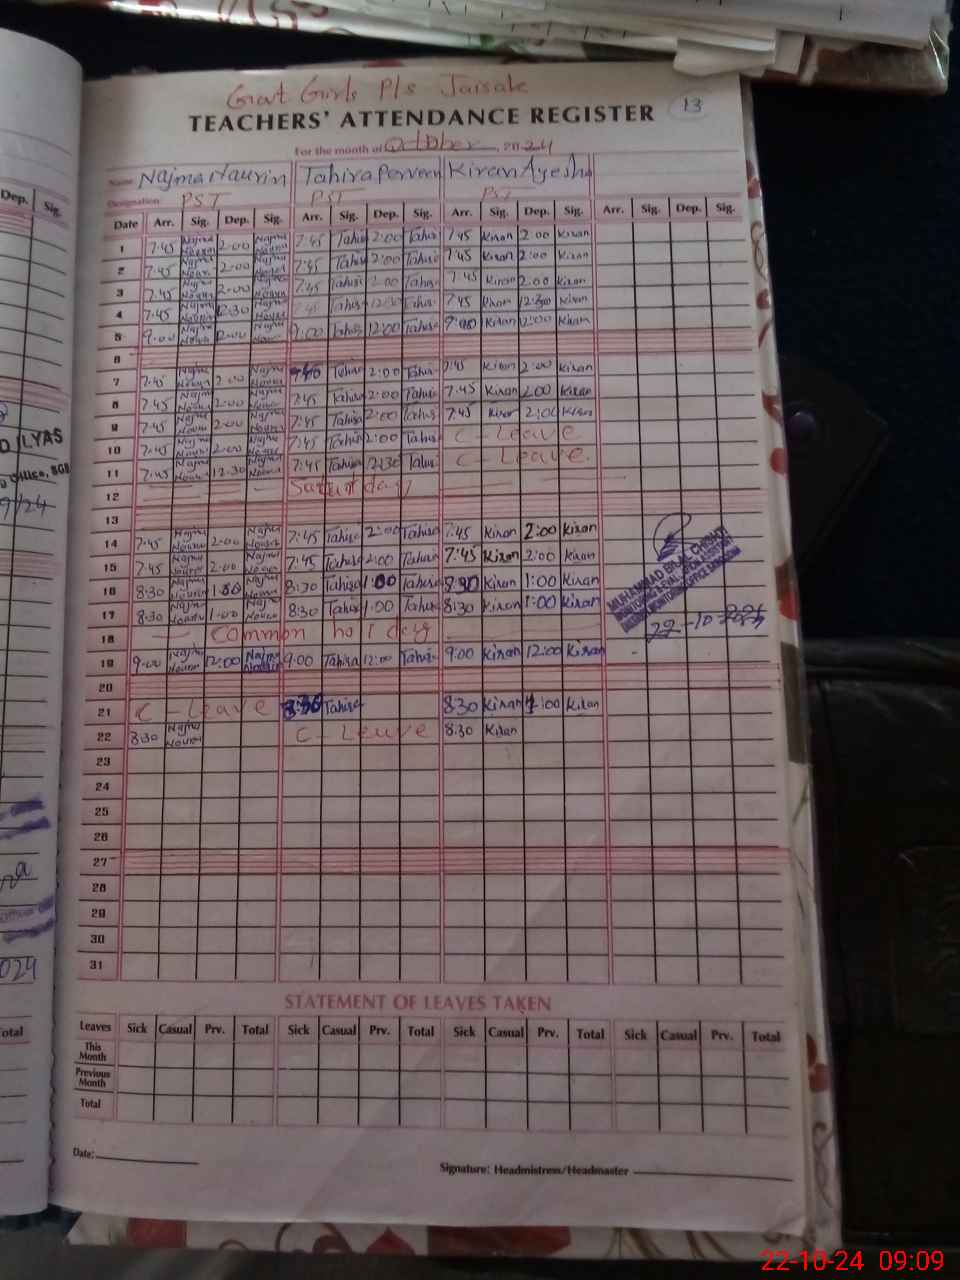 Govt Girls P/s Jaisak
TEACHERS' ATTENDANCE REGISTER
13
For the month of October, 2024
Name Najma Naurin Tahira Perveen Kiran Ayesha
Designation: PST PST PST
Dep. Sig.
Date Arr. Sig. Dep. Sig. Arr. Sig. Dep. Sig. Arr. Sig. Dep. Sig. Arr. Sig. Dep. Sig.
1 7:45 Najma Nourin 2:00 Najma Nourin 7:45 Tahira 2:00 Tahira 7:45 Kiran 2:00 Kiran
2 7:45 Najma Nourin 2:00 Najma Nourin 7:45 Tahira 2:00 Tahira 7:45 Kiran 2:00 Kiran
3 7:45 Najma Nourin 2:00 Najma Nourin 7:45 Tahira 2:00 Tahira 7:45 Kiran 2:00 Kiran
4 7:45 Najma Nourin 12:30 Najma Nourin 7:45 Tahira 12:30 Tahira 7:45 Kiran 12:30 Kiran
5 9:00 Najma Nourin 12:00 Najma Nourin 9:00 Tahira 12:00 Tahira 9:00 Kiran 12:00 Kiran
6
7 7:45 Najma Nourin 2:00 Najma Nourin Tahira 2:00 Tahira 7:45 Kiran 2:00 Kiran
8 7:45 Najma Nourin 2:00 Najma Nourin 7:45 Tahira 2:00 Tahira 7:45 Kiran 2:00 Kiran
9 7:45 Najma Nourin 2:00 Najma Nourin 7:45 Tahira 2:00 Tahira 7:45 Kiran 2:00 Kiran
10 7:45 Najma Nourin 2:00 Najma Nourin 7:45 Tahira 2:00 Tahira C-Leave
11 7:45 Najma Nourin 12:30 Najma Nourin 7:45 Tahira 12:30 Tahira C-Leave
12 Saturday
13
14 7:45 Najma Nourin 2:00 Najma Nourin 7:45 Tahira 2:00 Tahira 7:45 Kiran 2:00 Kiran
15 7:45 Najma Nourin 2:00 Najma Nourin 7:45 Tahira 2:00 Tahira 7:45 Kiran 2:00 Kiran
16 8:30 Najma Nourin 1:00 Najma Nourin 8:30 Tahira 1:00 Tahira 8:30 Kiran 1:00 Kiran
17 8:30 Najma Nourin 1:00 Najma Nourin 8:30 Tahira 1:00 Tahira 8:30 Kiran 1:00 Kiran
18 Common holiday
19 9:00 Najma Nourin 12:00 Najma Nourin 9:00 Tahira 12:00 Tahira 9:00 Kiran 12:00 Kiran
20
21 C-Leave 8:30 Tahira 8:30 Kiran 1:00 Kiran
22 8:30 Najma Nourin C-Leave 8:30 Kiran
23
24
25
26
27
28
29
30
31
MUHAMMAD BILAL
22-10-2024
D ILYAS
9/24
024
STATEMENT OF LEAVES TAKEN
Leaves Sick Casual Prv. Total Sick Casual Prv. Total Sick Casual Prv. Total Sick Casual Prv. Total
This Month
Previous Month
Total
Date:
Signature: Headmistress/Headmaster
22-10-24 09:09